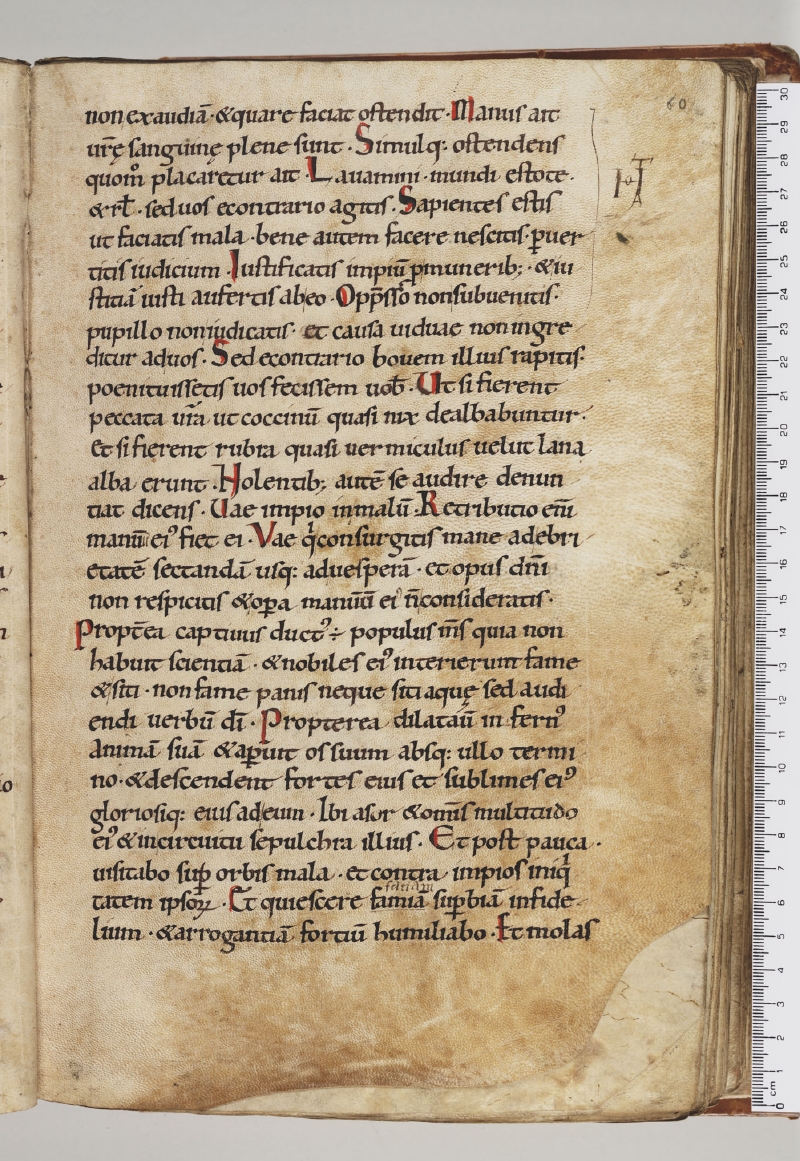 60
non exaudiā · & quare faciat ostendit · Manus ait
urę̄ sanguinę plene sunt · Simulq: ostendens
quom̄ placaretur ait · Lauamini · mundi estote ·
& rł · sed uos econtrario agitis · Sapientes estis
ut faciatis mala · bene autem facere nescitis · puer
titis iudicium · Iustificatis impiū p munerib; · & iu
stitiā iusti aufertis ab eo · Opp̄sso non subuenitis ·
pupillo non iudicatis · et causa uiduae non ingre
ditur ad uos · Sed econtrario bouem illius rapitis ·
poenituissetis uos fecissem uob̄ · Ut si fierent
peccata ur̄a ut coccinū quasi nix dealbabuntur ·
Et si fierent rubra quasi uermiculus uelut lana
alba erunt · Nolentib; autē se audire denun
tiat dicens · Uae impio in malū · Retributio eni̅
manuū eiꝰ fiet ei · Vae q̇ consurgitis mane ad ebri
etatē sectandā usq: ad uesperā · et opus dn̄i
non respicitis & opa manuū ei n̄ consideratis ·
Propt̄ea captiuus ductꝰ ÷ populus m̄s quia non
habuit scientiā · & nobiles eiꝰ interierunt fame
& siti · non fame panis neque siti aquę sed audi
endi uerbū dī · Propterea dilatauī infernꝰ
animā suā & apuit os suum absq: ullo termi
no · & descendent fortes eius et sublimes eiꝰ
gloriosiq: eius ad eum · Ibi asor & omīs multitudo
eiꝰ & in circuitu sepulchra illius · Et post pauca ·
uisitabo sup orbis mala · et contra impios iniq̇
tatem ipsoꝝ · Et quiescere famiā supbiā infide
lium · & arrogantiā fortiū humiliabo · Et molas